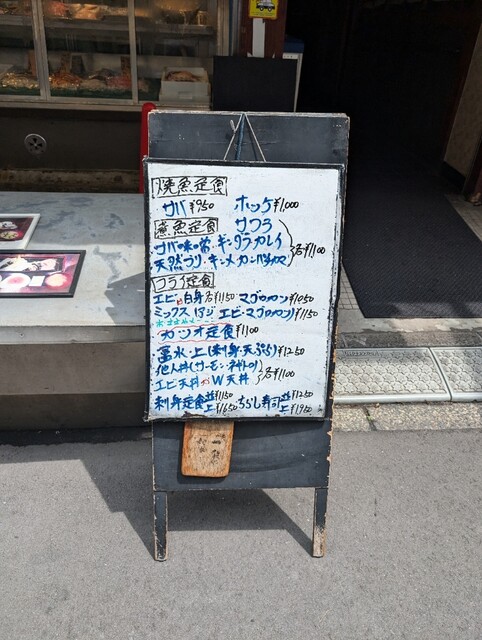 焼魚定食
サバ ¥950 ホッケ ¥1,000
煮魚定食 サワラ
サバ味噌・ギンダラカレイ
天然ブリ・キンメ 各¥1100
フライ定食
エビ 白身 各¥1150 マグロカツ ¥1050
ミックスは エビ・マグロカツ ¥1150
カツオ定食 ¥1100
冨水・上(刺身・天ぷら) ¥1250
他人丼(サーモン・ネギトロ)
エビ天丼 W天丼 各¥1100
刺身定食 並¥1150 上¥1650 ちらし寿司 並¥1250 上¥1950